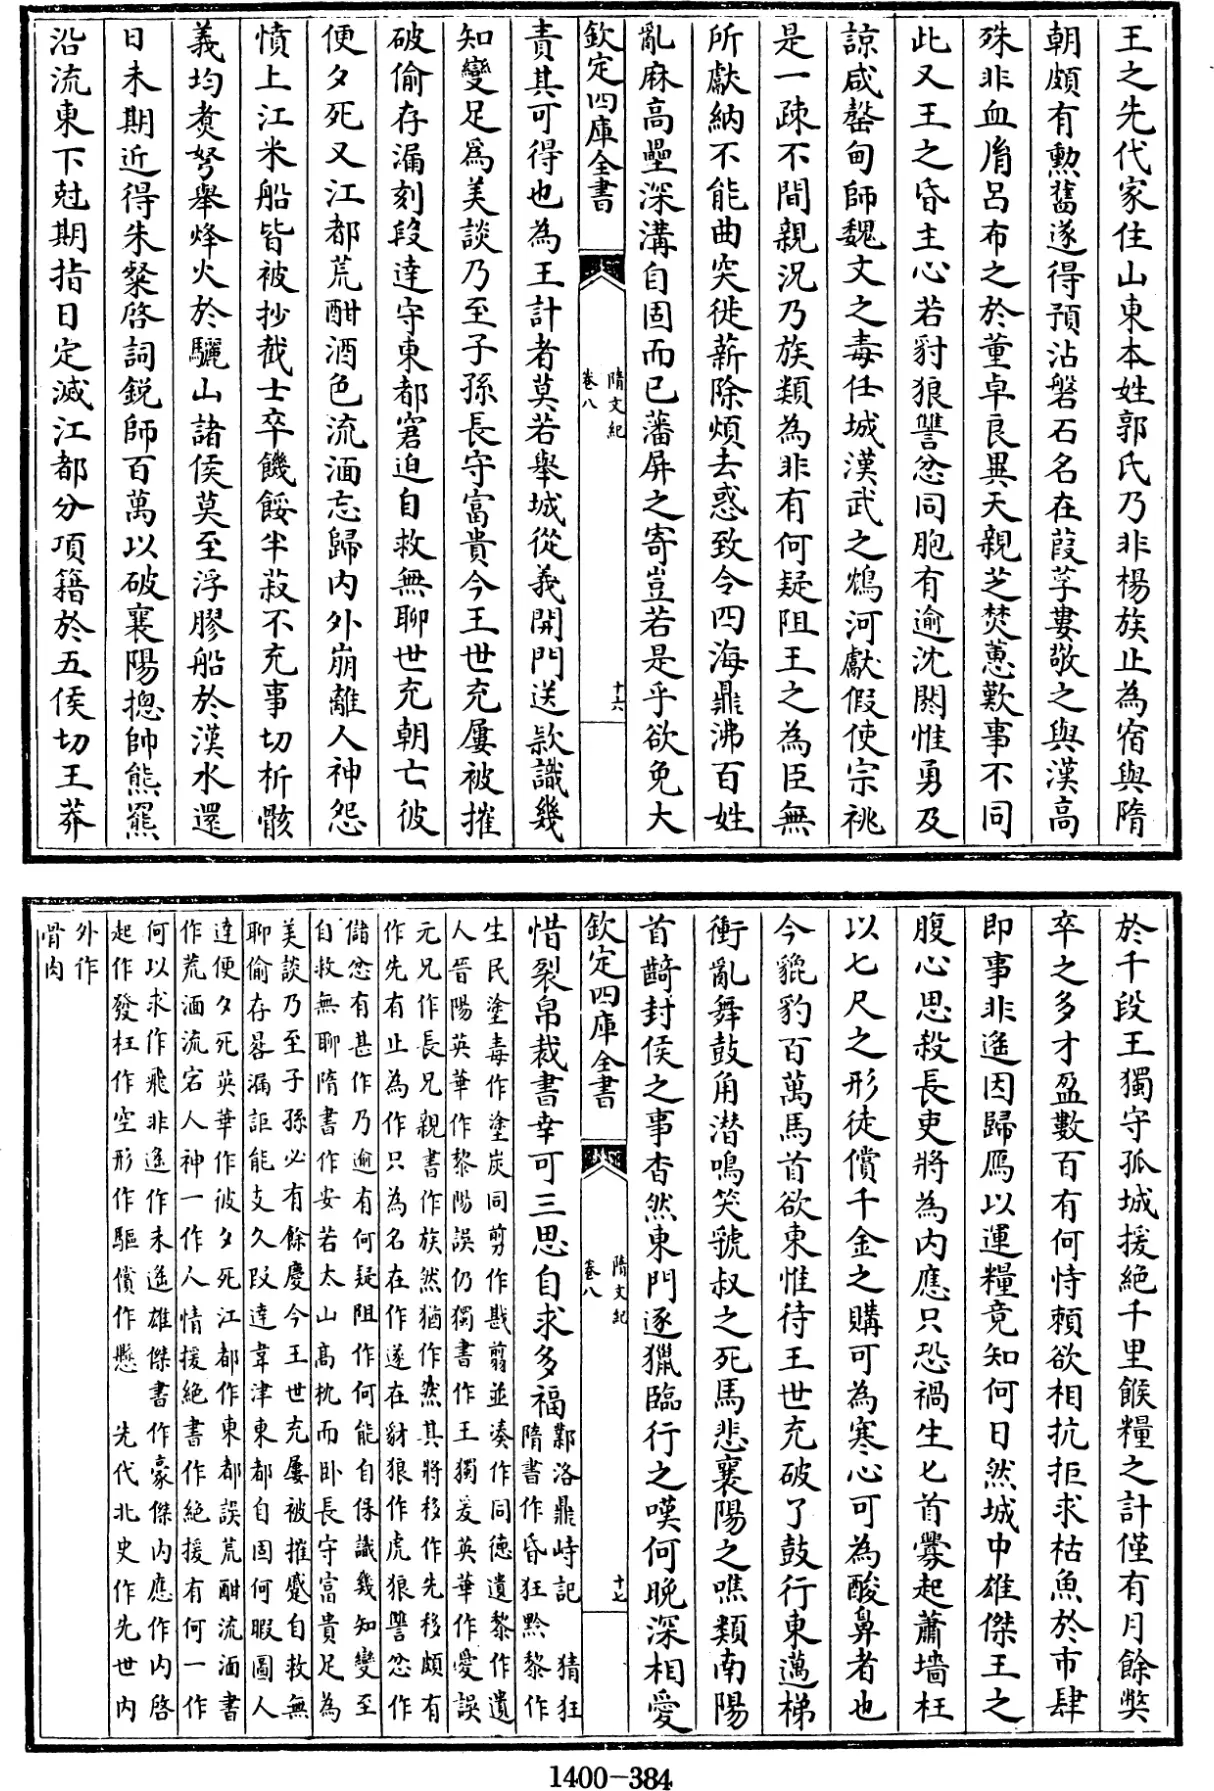 王之先代家住山東本姓郭氏乃非楊族止為宿與隋
朝頗有勲舊遂得預沾磐石名在葭莩婁敬之與漢高
殊非血胤呂布之於董卓良異天親芝焚蕙歎事不同
此又王之昏主心若豺狼讐忿同胞有逾沈閼惟勇及
諒咸罄甸師魏文之毒任城漢武之鴆河獻假使宗祧
是一疎不間親況乃族類為非有何疑阻王之為臣無
所獻納不能曲突徙薪除煩去惑致令四海鼎沸百姓
亂麻高壘深溝自固而已藩屏之寄豈若是乎欲免大
欽定四庫全書
隋文紀
卷八
十六
責其可得也為王計者莫若舉城從義開門送欵識幾
知變足為美談乃至子孫長守富貴今王世充屢被摧
破偷存漏刻段達守東都窘迫自救無聊世充朝亡彼
便夕死又江都荒酣酒色流湎忘歸内外崩離人神怨
憤上江米船皆被抄截士卒饑餒半菽不充事切析骸
義均煑弩舉烽火於驪山諸侯莫至浮膠船於漢水還
日未期近得朱粲啓詞鋭師百萬以破襄陽摠帥熊羆
沿流東下尅期指日定滅江都分項籍於五侯切王莽
於千段王獨守孤城援絶千里餱糧之計僅有月餘獘
卒之多才盈數百有何恃頼欲相抗拒求枯魚於市肆
即事非遥因歸鴈以運糧竟知何日然城中雄傑王之
腹心思殺長吏將為内應只恐禍生匕首釁起蕭墻枉
以七尺之形徒償千金之購可為寒心可為酸鼻者也
今貔豹百萬馬首欲東惟待王世充破了鼓行東邁梯
衝亂舞鼓角潜鳴笑虢叔之死馬悲襄陽之噍類南陽
首齮封侯之事杳然東門逐獵臨行之嘆何晩深相愛
欽定四庫全書
隋文紀
卷八
十七
惜裂帛裁書幸可三思自求多福
鄴洛鼎峙記　猜狂
隋書作昏狂黔黎作
生民塗毒作塗炭同剪作戡翦並凑作同德遺黎作遺
人晋陽英華作黎陽誤仍獨書作王獨爰英華作愛誤
元兄作長兄親書作族然猶作然其將移作先移頗有
作先有止為作只為名在作遂在豺狼作虎狼讐忿作
讎忿有甚作乃逾有何疑阻作何能自保識幾知變至
自救無聊隋書作安若太山高枕而卧長守富貴足為
美談乃至子孫必有餘慶今王世充屢被摧蹙自救無
聊偷存晷漏詎能支久段達韋津東都自固何暇圖人
達便夕死英華作彼夕死江都作東都誤荒酣流湎書
作荒湎流宕人神一作人情援絶書作絶援有何一作
何以求作飛非遥作未遥雄傑書作豪傑内應作内啓
起作發枉作空形作驅償作懸　先代北史作先世内
外作
骨肉
1400-384